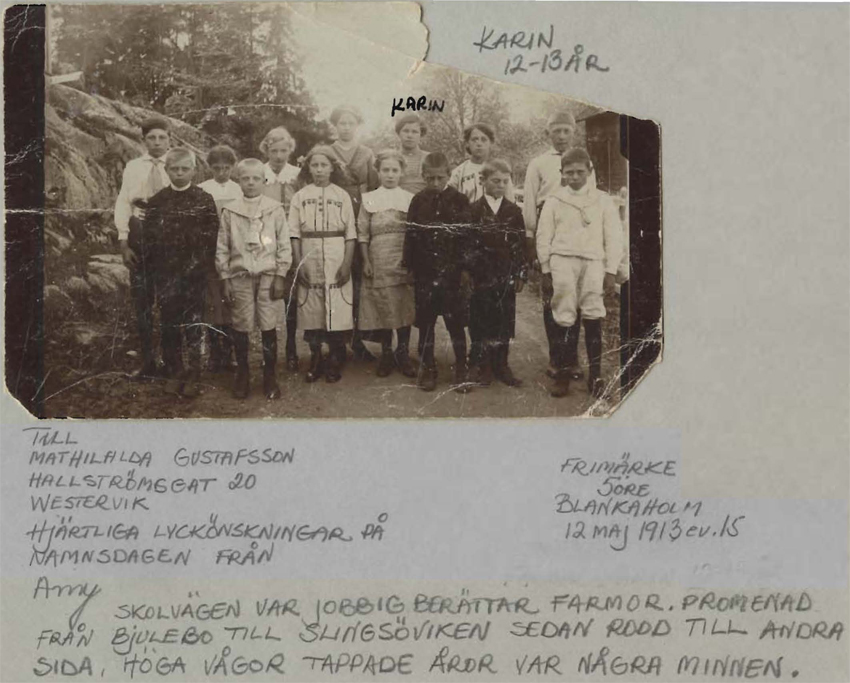 KARIN
12-13 ÅR
KARIN
TILL
MATHILHLDA GUSTAFSSON
HALLSTRÖMSGAT 20
WESTERVIK
HJÄRTLIGA LYCKÖNSKNINGAR PÅ
NAMNSDAGEN FRÅN
Amy
FRIMÄRKE
5ÖRE
BLANKAHOLM
12 MAJ 1913 ev. 15
SKOLVÄGEN VAR JOBBIG BERÄTTAR FARMOR. PROMENAD
FRÅN BJULEBO TILL SLINGSÖVIKEN SEDAN RODD TILL ANDRA
SIDA, HÖGA VÅGOR TAPPADE ÅROR VAR NÅGRA MINNEN.